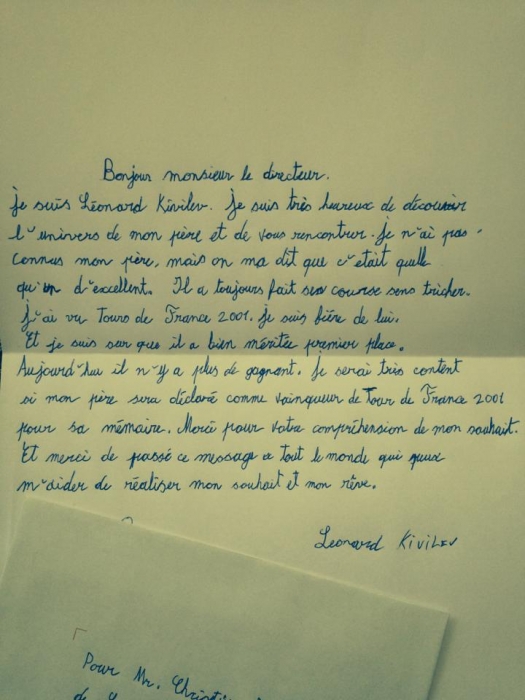 Bonjour monsieur le directeur.
Je suis Léonard Kivilev. Je suis très heureux de découvrir
l'univers de mon père et de vous rencontrer. Je n'ai pas
connus mon père, mais on ma dit que c'était quelle
qu'un d'excellent. Il a toujours fait sa course sens tricher.
J'ai vu Tours de France 2001. Je suis fière de lui.
Et je suis sur que il a bien méritée premier place.
Aujourd'hui il n'y a plus de gagnant. Je serai très content
si mon père sera déclaré comme vainqueur de Tour de France 2001
pour sa mémaire. Mercé pour votre compréhension de mon souhait.
Et merci de passé ce message a tout le monde qui
m'aider de réaliser mon souhait et mon rêve.
Leonard Kivilev
Pour Mr. Christi
de